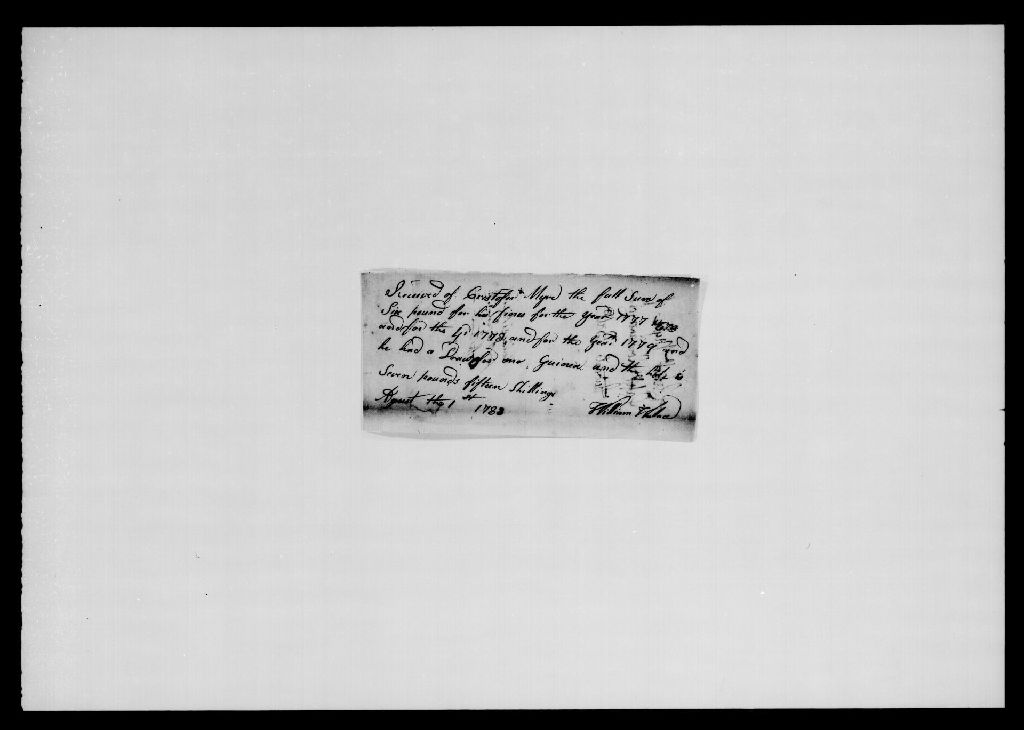 Received of Cristofer Myre the full Sum of
Six pound for his fines for the year 1777
and for the y 1778 and for the year 1779 and
he had a for one Guinea and the
Seven pounds fifteen Shillings
Agust the 1st 1783 William